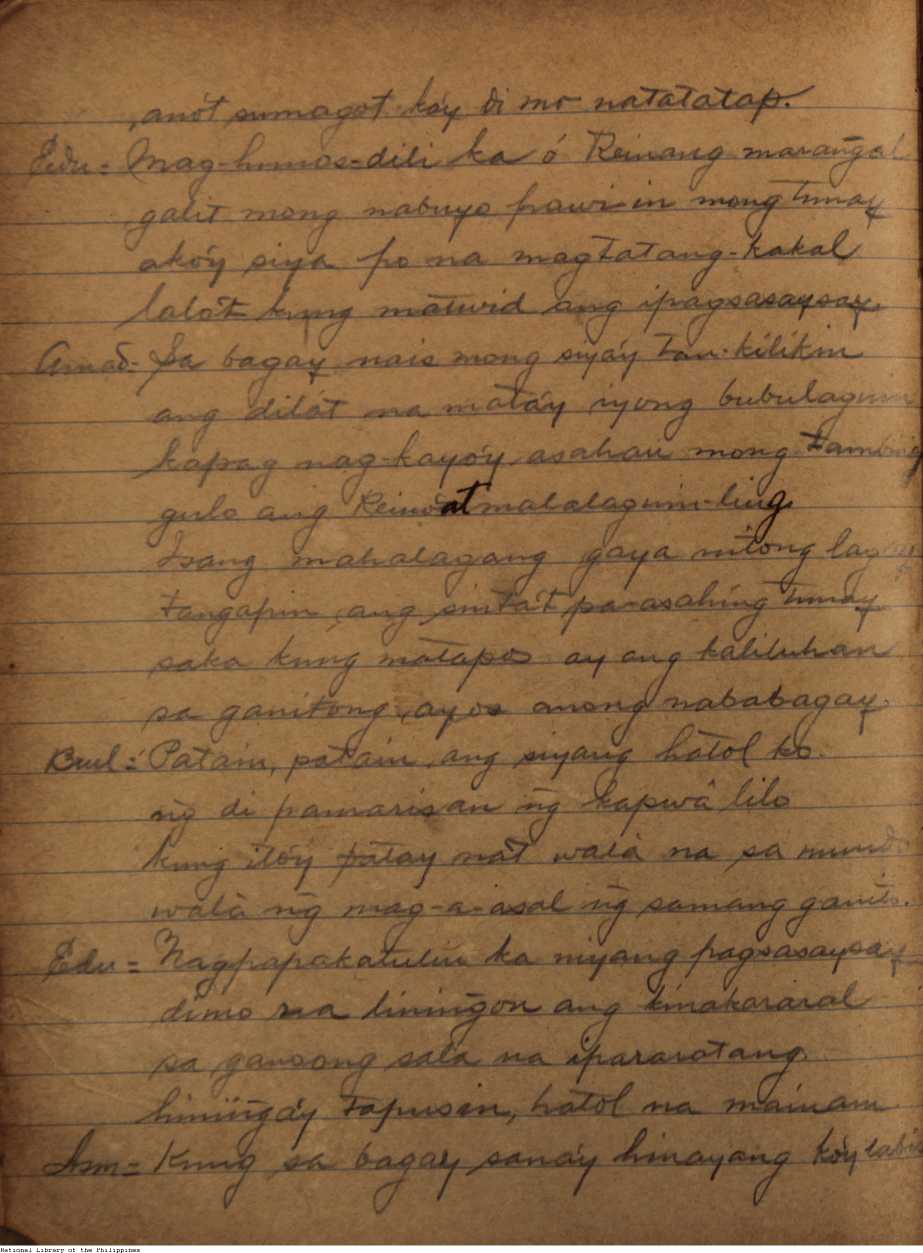 , anót sumagot ká'y di mo natatatap.
Edu = Mag-hunos-dili ka ó Reinang marang̃al
galit mong nabuyo pawi-in mong tunay
akó'y siya po na magtatang-kakal
labát kung matuwid ang ipagsasaysay.
Amad- Sa bagay nais mong siyá'y tan-kilikin
ang dilát na matá'y iyong bubulaguin
kapag nag-kayó'y asahan mong
gulo ang Reino at malalaguim-ling
Isang mahalagang gaya nitong
tangapin, ang sintá't pa-asahing tunay
saka kung matapos ay ang kaliluhan
sa ganitong, ayos anong nababagay.
Bul = Patain, patain, ang siyang hátol ko.
ng̃ di pamarisan ng̃ kapwâ lilo
kung itó'y patay nát walâ na sa mundo
walâ ng̃ mag-a-asal ng̃ samang ganito.
Edu = Nagpapakatuliu ka niyang pagsasaysay
dimo na lining̃on ang kinakararal
sa gansong sala na ipararatang
hining̃á'y tapusin, hátol na mainam
Ism = Kung sa bagay saná'y hinayang kó'y
National Library of the Philippines